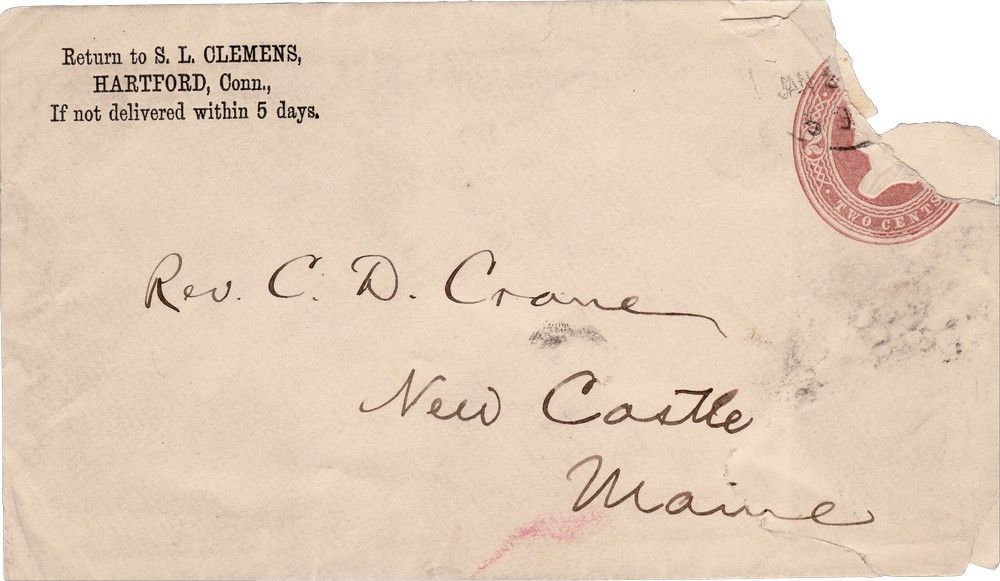 Return to S. L. CLEMENS,
HARTFORD, Conn.,
If not delivered within 5 days.
JAN
2
TWO CENTS
Rev. C. D. Crane
New Castle
Maine